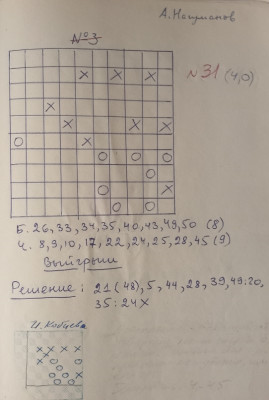 А. Нагуманов
№3
N 31 (4,0)
Б. 26, 33, 34, 35, 40, 43, 49, 50 (8)
Ч. 8, 9, 10, 17, 22, 24, 25, 28, 45 (9)
Выйгрыш
Решение: 21 (48), 5, 44, 28, 39, 49:20,
35:24X